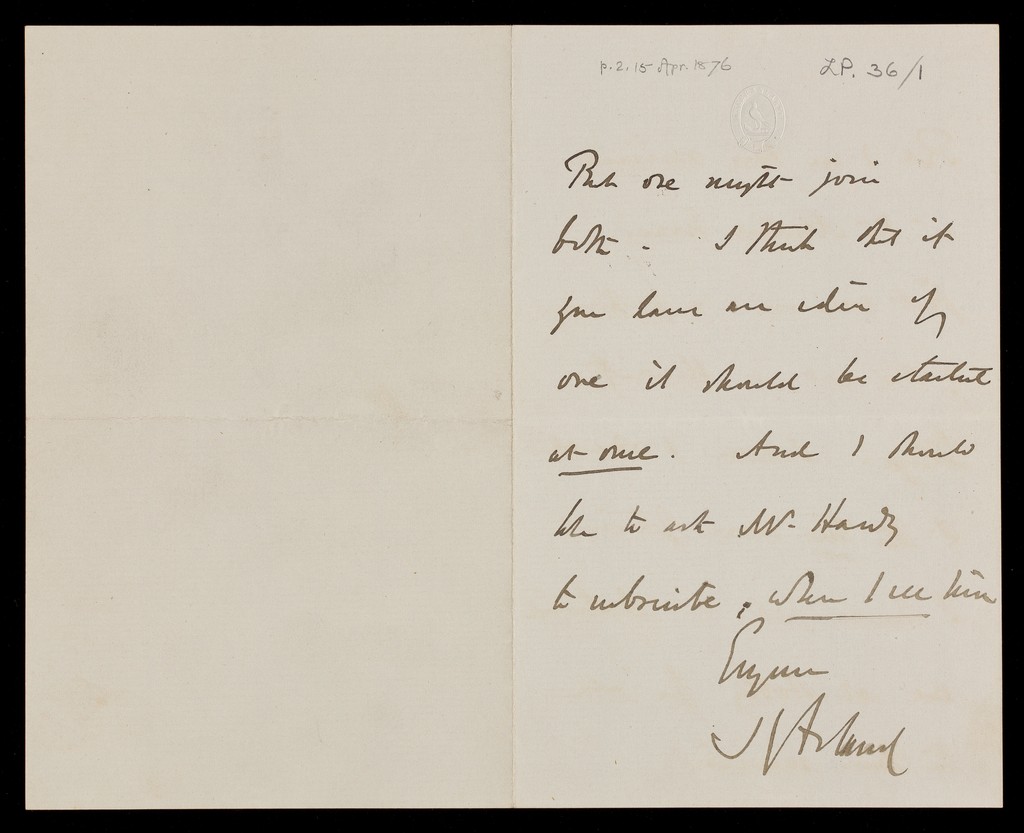 p.2. 15 Apr. 1876
LP. 36/1
But one might join
both - I think that if
you have an idea of
one it should be started
at once. And I should
like to ask Mr Hardy
to subscribe, when I see him